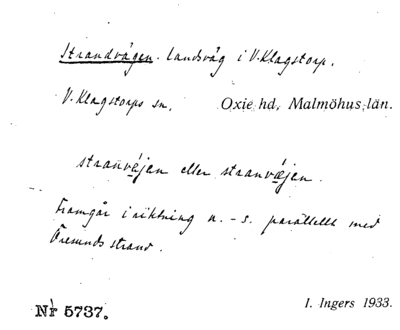 Strandvägen. Landsväg i V. Klagstorp.
V. Klagstorps sn. Oxie hd, Malmöhus län.
stranvéjen eller stranvæjen.
Framgår i riktning n. - s. parallellt med
Öresunds strand.
Nr 5737. I. Ingers 1933.